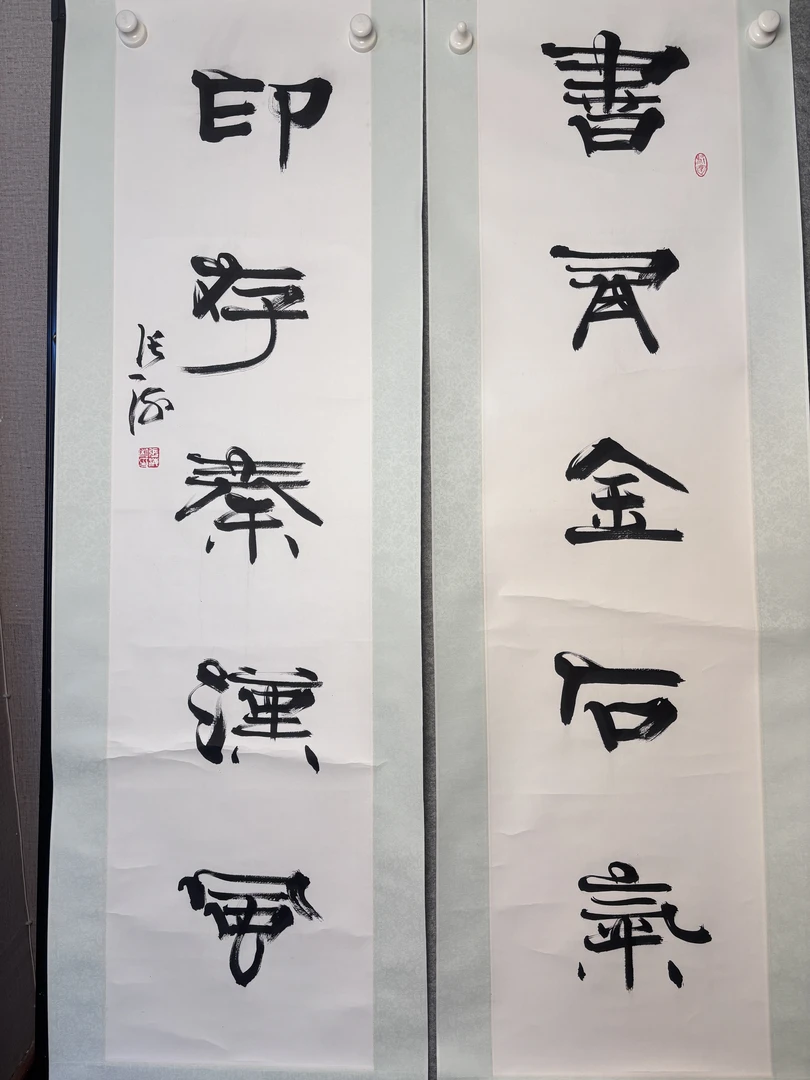 書有金石氣
印存秦漢風
张一